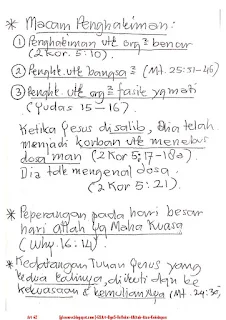 * Macam Penghakiman:
① Penghakiman utk org² benar
(2 Kor. 5:10).
② Penghk. utk bangsa² (Mt. 25:31-46)
③ Penghk. utk org² fasik yg mati
(Yudas 15-16).
Ketika Yesus disalib, Dia telah
menjadi korban utk menebus
dosa man (2 Kor 5:17-18a).
Dia tdk mengenal dosa
(2 Kor 5:21).
* Peperangan pada hari besar
hari Allah Yg Maha Kuasa
(Why. 16:14).
* Kedatangan Tuhan Yesus yang
kedua kalinya, diikuti dgn ke
kekuasaan & kemuliaanNya (Mt. 24:30,